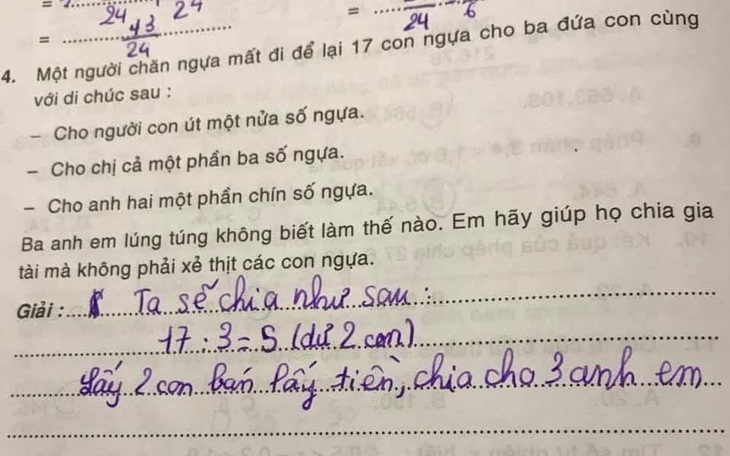 = 
24 24
= 43
24
= 24 6
4. Một người chăn ngựa mất đi để lại 17 con ngựa cho ba đứa con cùng
với di chúc sau :
– Cho người con út một nửa số ngựa.
– Cho chị cả một phần ba số ngựa.
– Cho anh hai một phần chín số ngựa.
Ba anh em lúng túng không biết làm thế nào. Em hãy giúp họ chia gia
tài mà không phải xẻ thịt các con ngựa.
Giải : Ta sẽ chia như sau :
17 : 3 = 5 (dư 2 con)
Lấy 2 con bán lấy tiền, chia cho 3 anh em